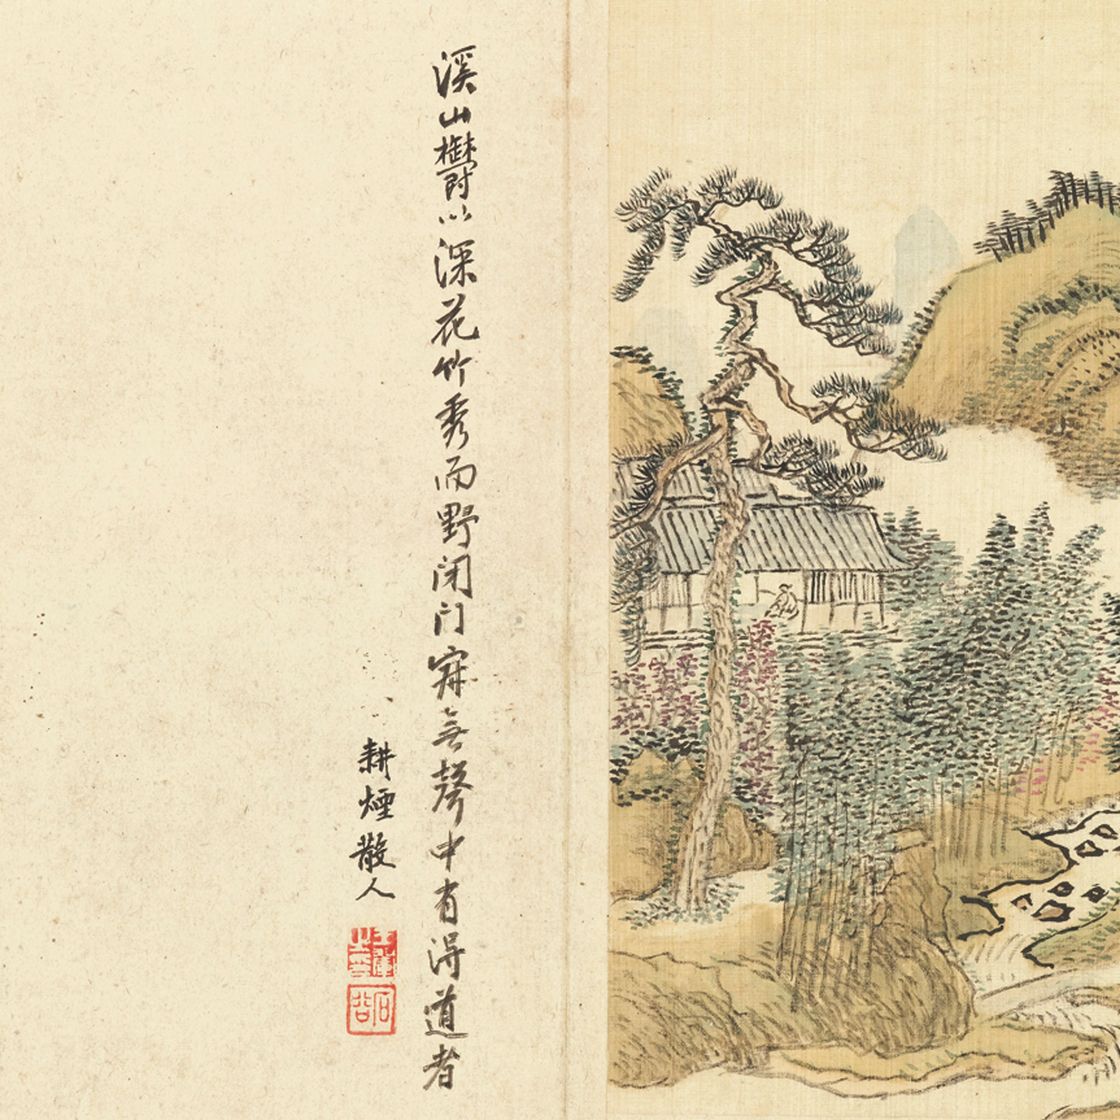 溪山欝以深花竹秀而野闭门寂無聲中有得道者
耕煙散人
石谷